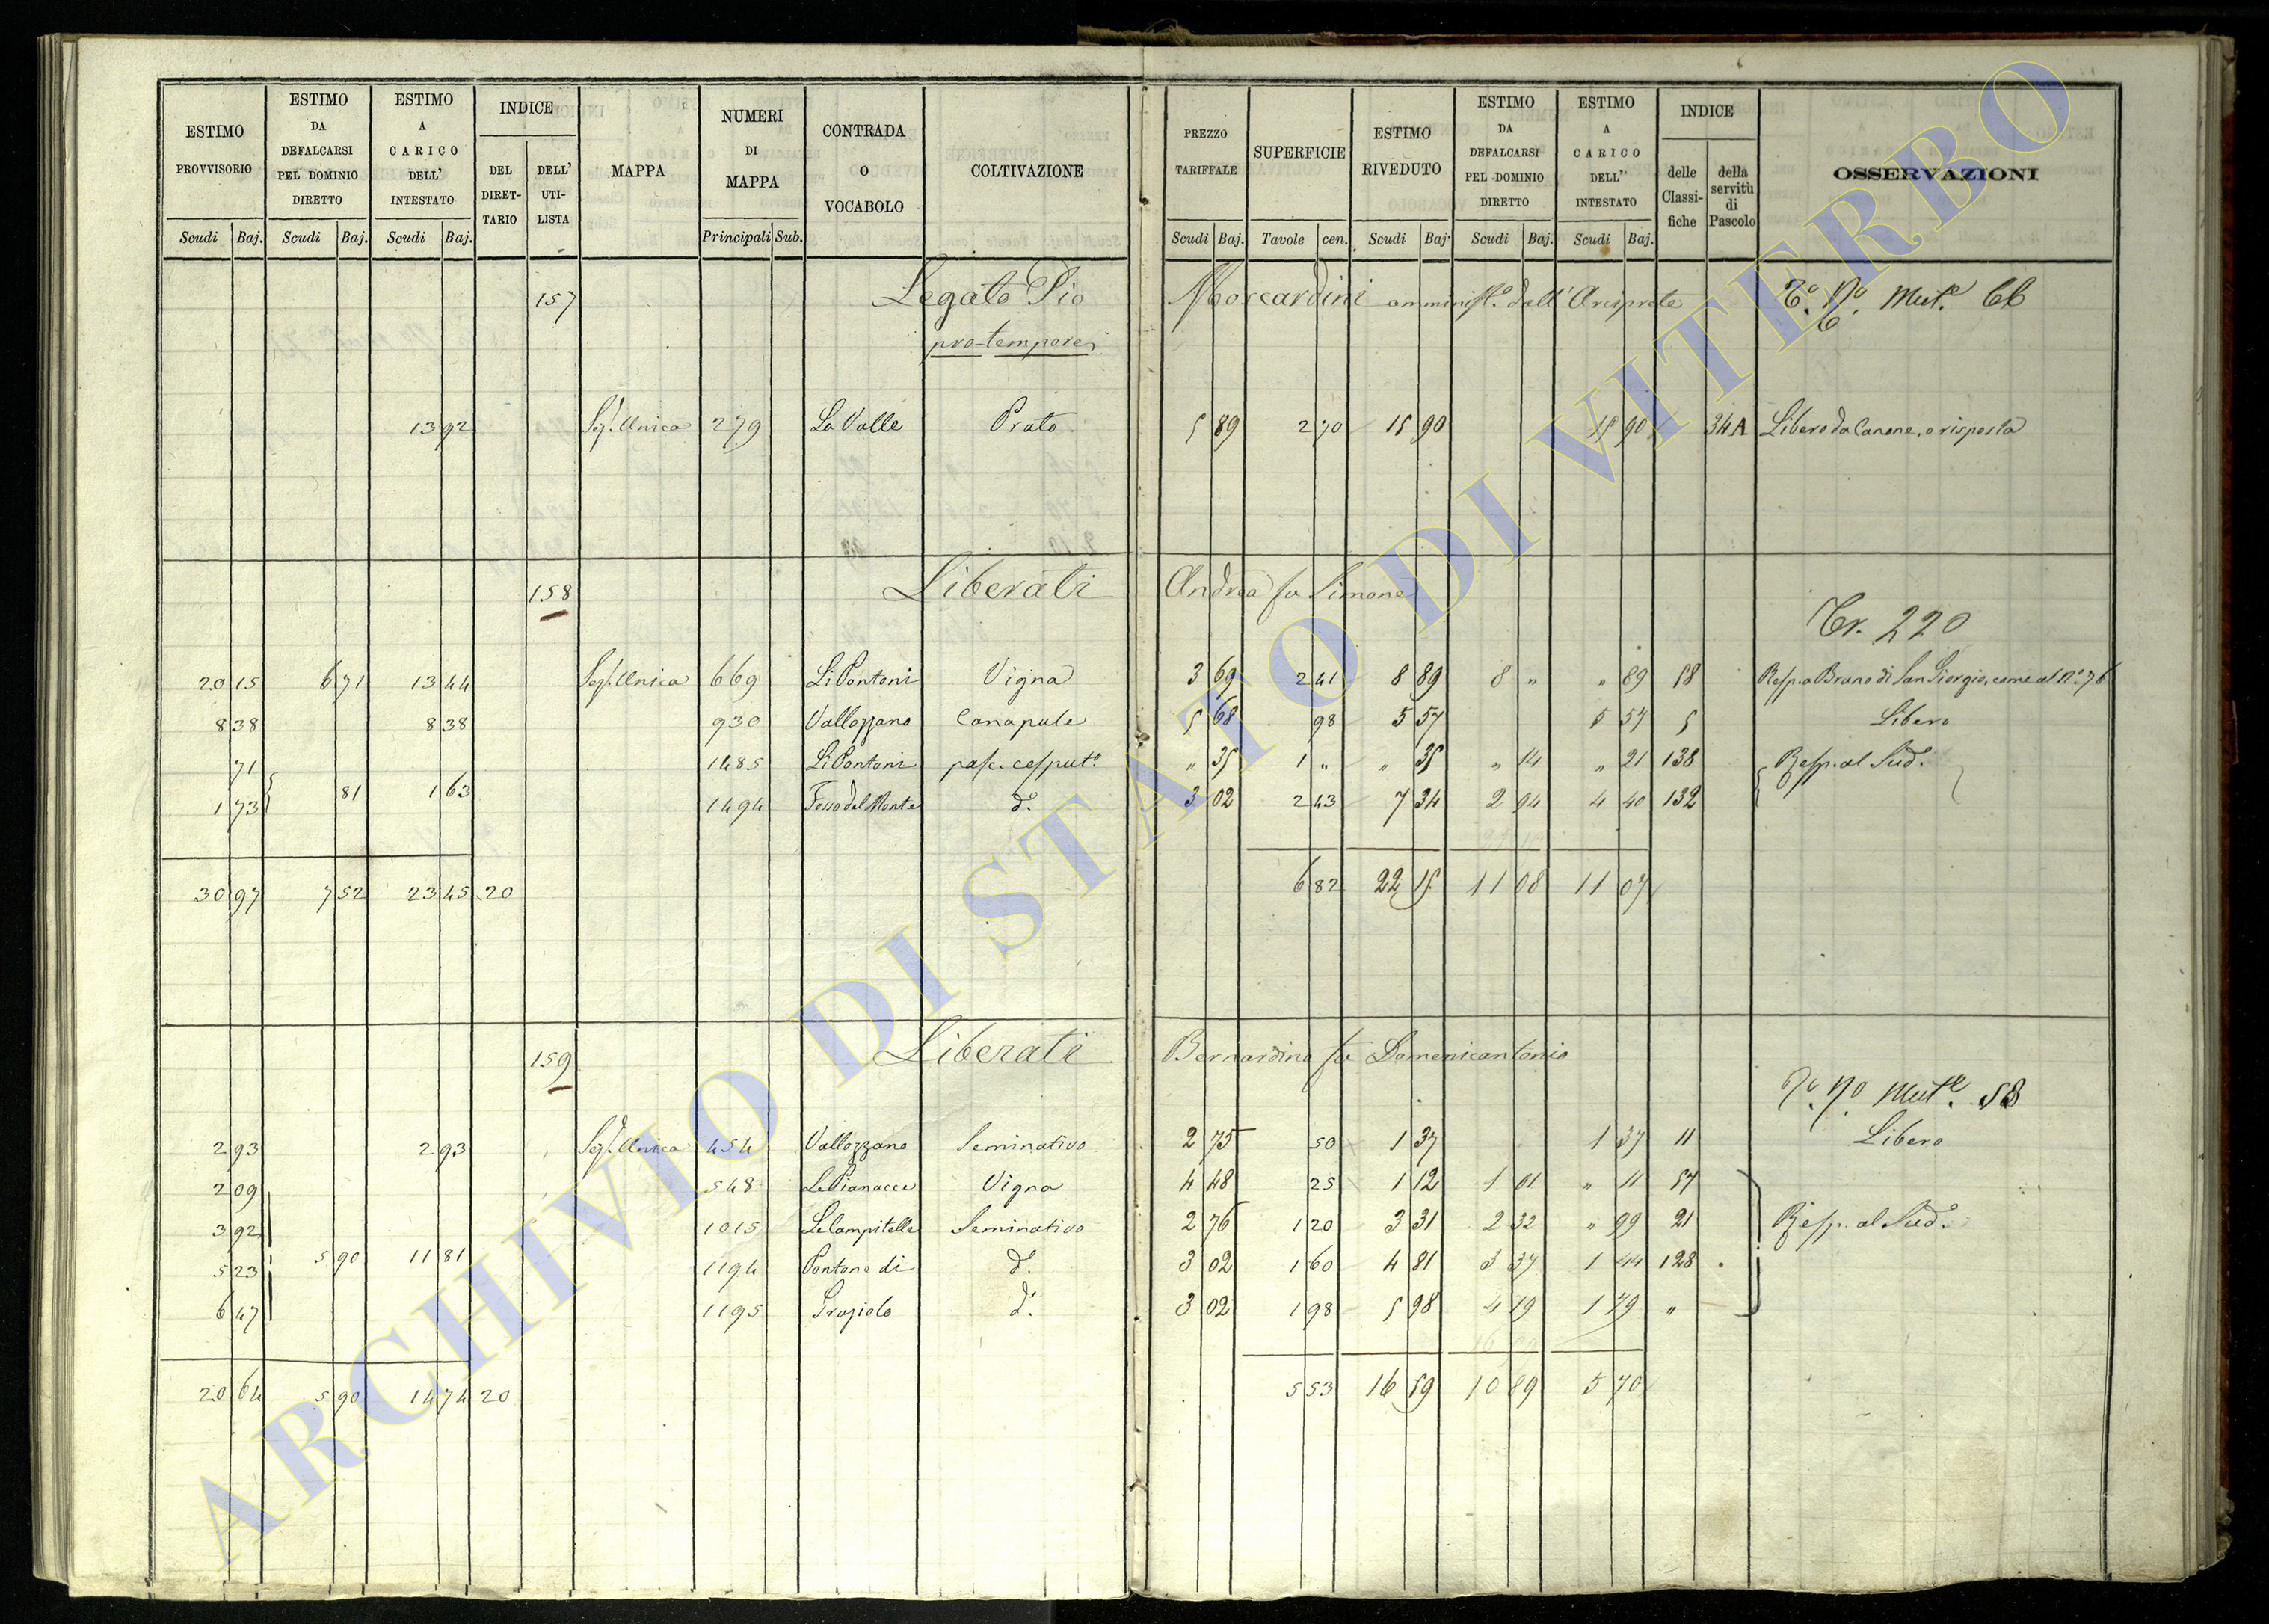 ESTIMO PROVVISORIO Scudi Baj. ESTIMO DA DEFALCARSI PEL DOMINIO DIRETTO Scudi Baj. ESTIMO A CARICO DELL' INTESTATO Scudi Baj. INDICE DEL DIRETTARIO DELL' UTILISTA MAPPA NUMERI DI MAPPA Principali Sub. CONTRADA O VOCABOLO COLTIVAZIONE PREZZO TARIFFALE Scudi Baj. SUPERFICIE Tavole cen. ESTIMO RIVEDUTO Scudi Baj. ESTIMO DA DEFALCARSI PEL DOMINIO DIRETTO Scudi Baj. ESTIMO A CARICO DELL' INTESTATO Scudi Baj. INDICE delle Classifiche della servitù di Pascolo OSSERVAZIONI
157 Legato Pio Moccardini amminist.o dall' Arciprete Mut.e 66
pro-tempore
13 92 Sez. Unica 279 La Valle Prato 5 89 2 70 15 90 15 90 34A Libero da Canone, o risposta
158 Liberati Andrea fu Simone
Tr. 220
20 15 6 71 13 44 Sez. Unica 669 Li Pontoni Vigna 3 69 2 41 8 89 8 " " 89 58 Resp. a Brano di San Giorgio, come al N.o 76
8 38 8 38 930 Vallozzano Canapule 5 68 98 5 57 5 57 5 Libero
71 1485 Li Pontoni pasc. cesput.o " 35 1 " " 35 " 14 " 21 138 Resp. al Sud.o
1 73 81 1 63 1494 Fosso del Monte d.o 3 02 2 43 7 34 2 94 4 40 132
30 97 7 52 23 45 20 6 82 22 15 11 08 11 07
159 Liberati Bernardino fu Domenicantonio
Mut.e 58
2 93 2 93 Sez. Unica 454 Vallozzano Seminativo 2 75 50 1 37 1 37 11 Libero
2 09 548 Le Pianacce Vigna 4 48 25 1 12 1 01 " 11 57
3 92 1015 Le Campitelle Seminativo 2 76 1 20 3 31 2 32 " 99 21 Resp. al Sud.o
5 23 5 90 11 81 1194 Pontone di d.o 3 02 1 60 4 81 3 37 1 44 128
6 47 1195 d.o 3 02 1 98 5 98 4 19 1 79 "
20 64 5 90 14 74 20 5 53 16 59 10 89 5 70
ARCHIVIO DI STATO DI VITERBO